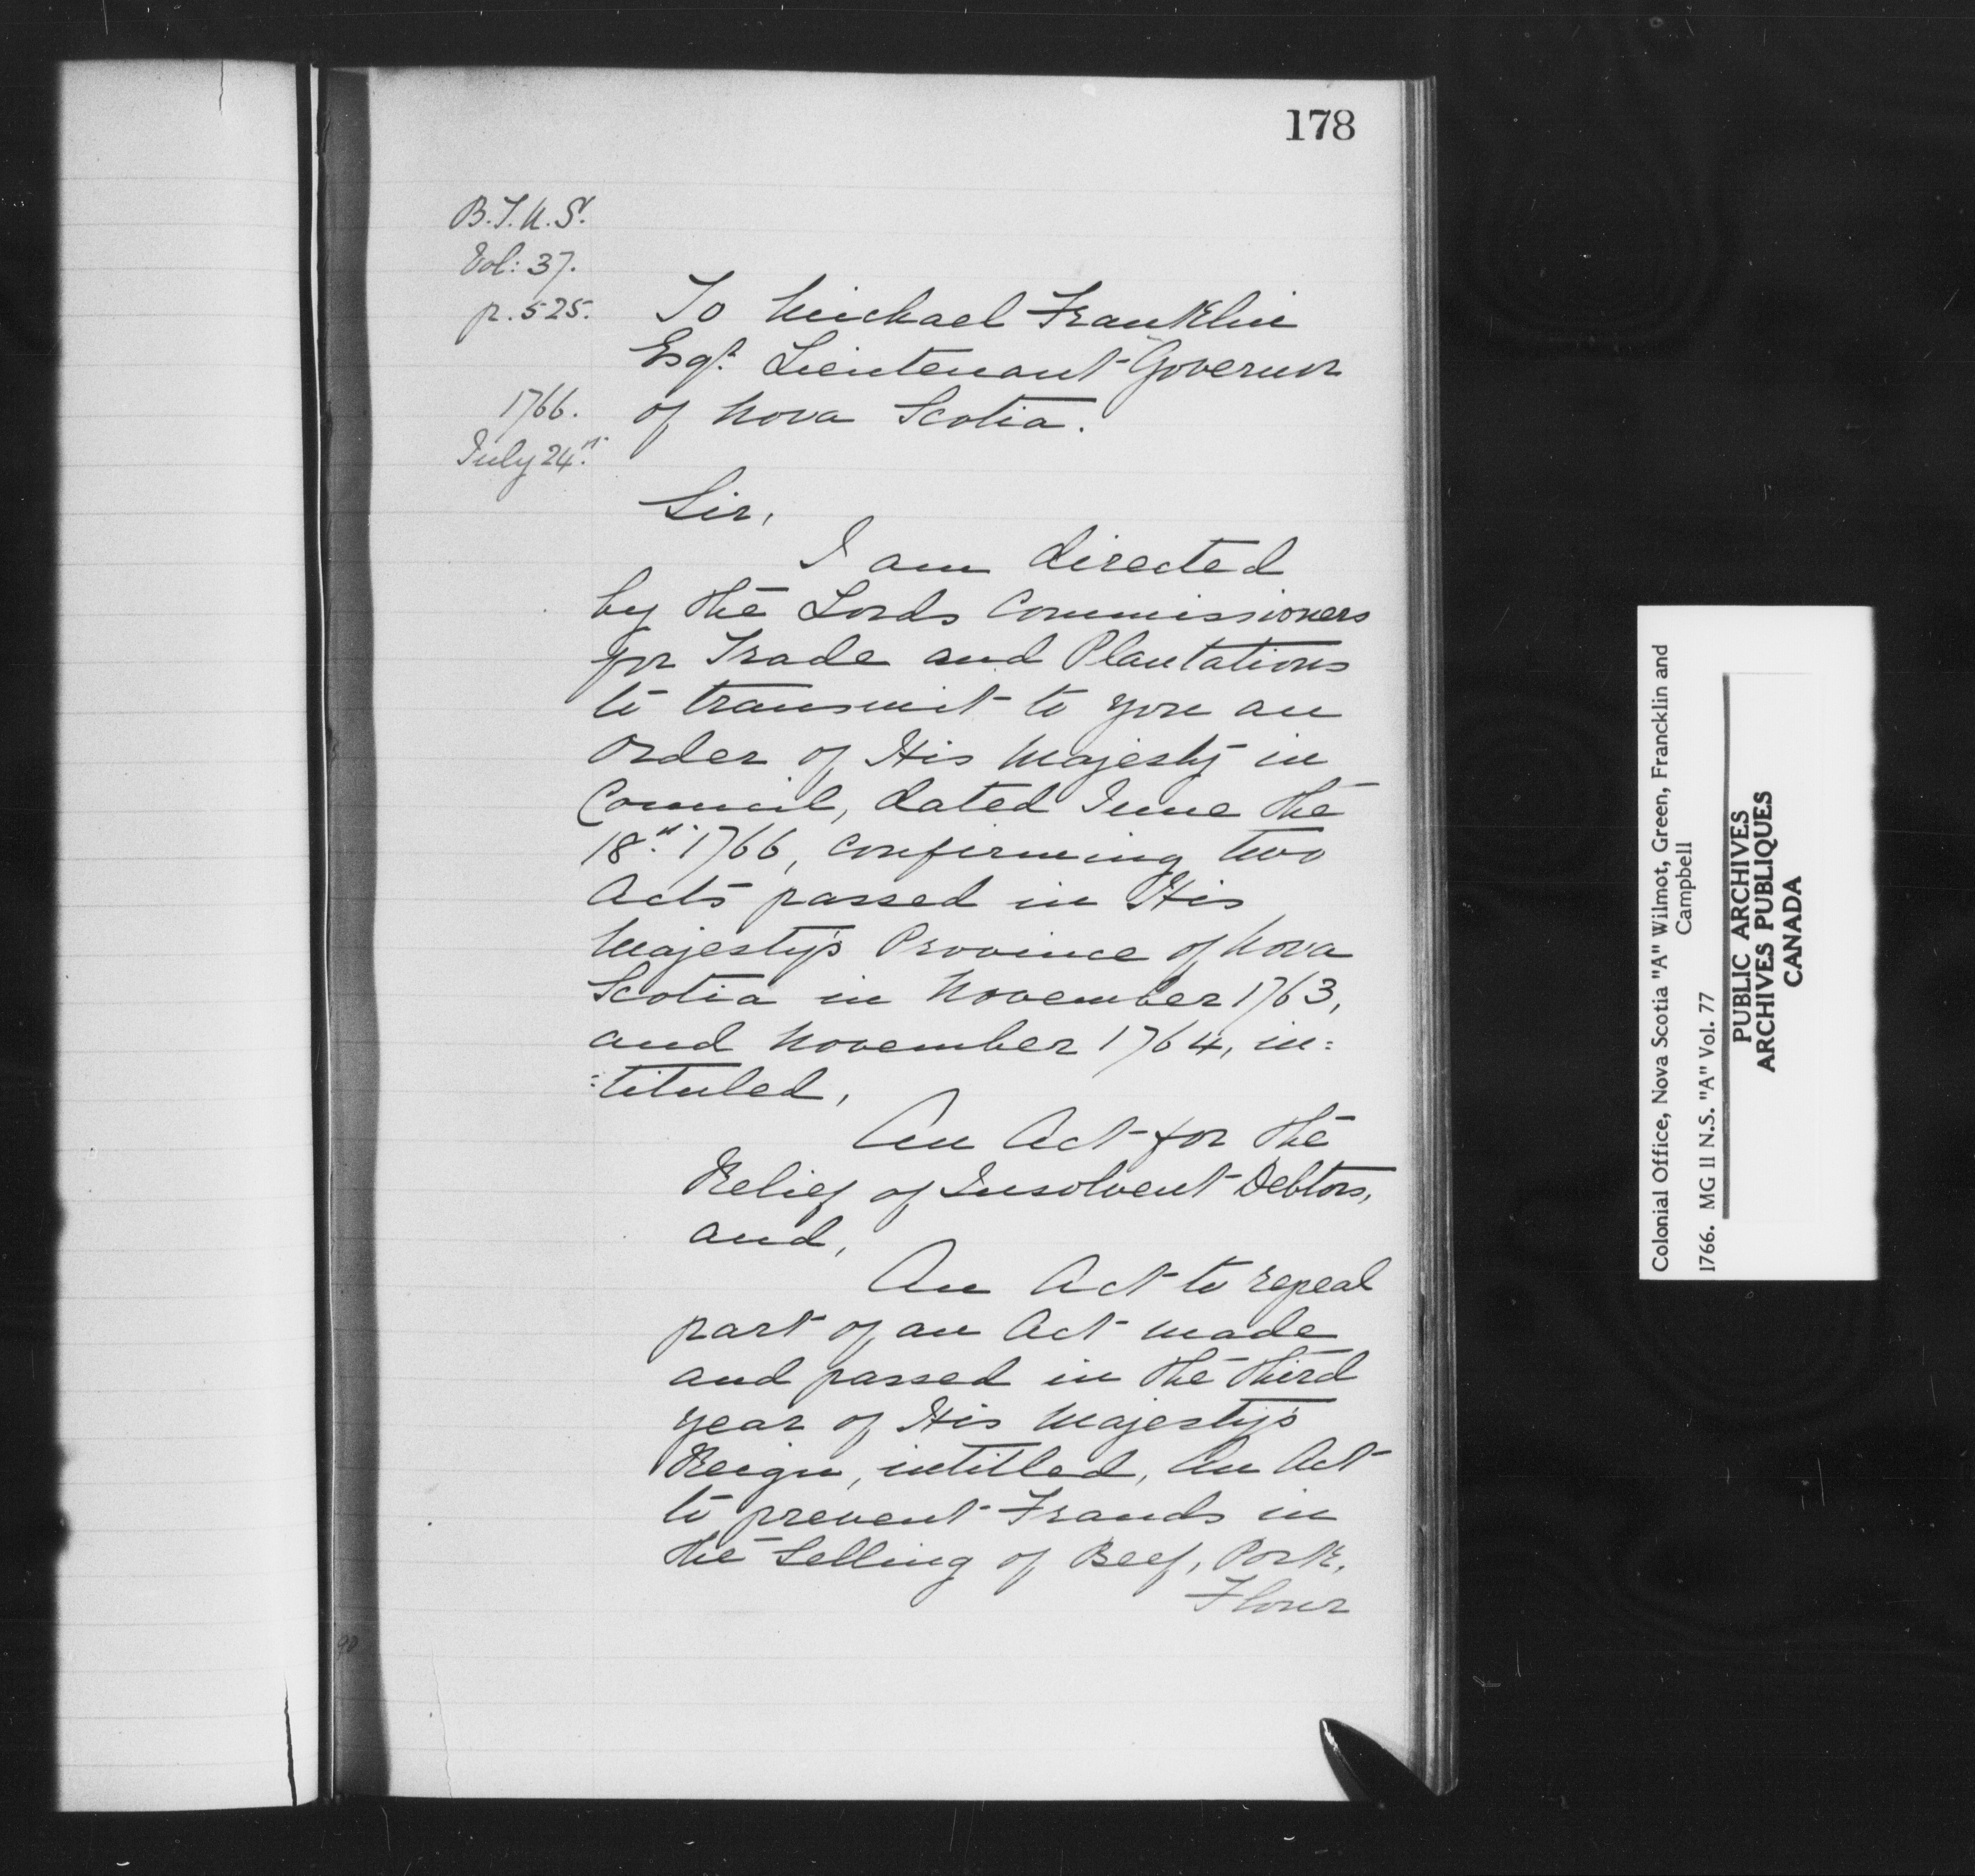 178
B.T.N.S.
Vol: 37.
p. 525.
1766.
July 24th.
To Michael Franklin
Esqr. Lieutenant-Governor
of Nova Scotia.
Sir,
I am directed
by the Lords Commissioners
for Trade and Plantations
to transmit to you an
Order of His Majesty in
Council, dated June the
18th. 1766, confirming two
Acts passed in His
Majesty's Province of Nova
Scotia in November 1763,
and November 1764, in=
=tituled,
An Act for the
Relief of Insolvent Debtors,
and,
An Act to repeal
part of an Act made
and passed in the third
year of His Majesty's
Reign, intitled, An Act
to prevent Frauds in
the Selling of Beef, Pork,
Flour
Colonial Office, Nova Scotia "A" Wilmot, Green, Francklin and
Campbell
1766. MG II N.S. "A" Vol. 77
PUBLIC ARCHIVES
ARCHIVES PUBLIQUES
CANADA